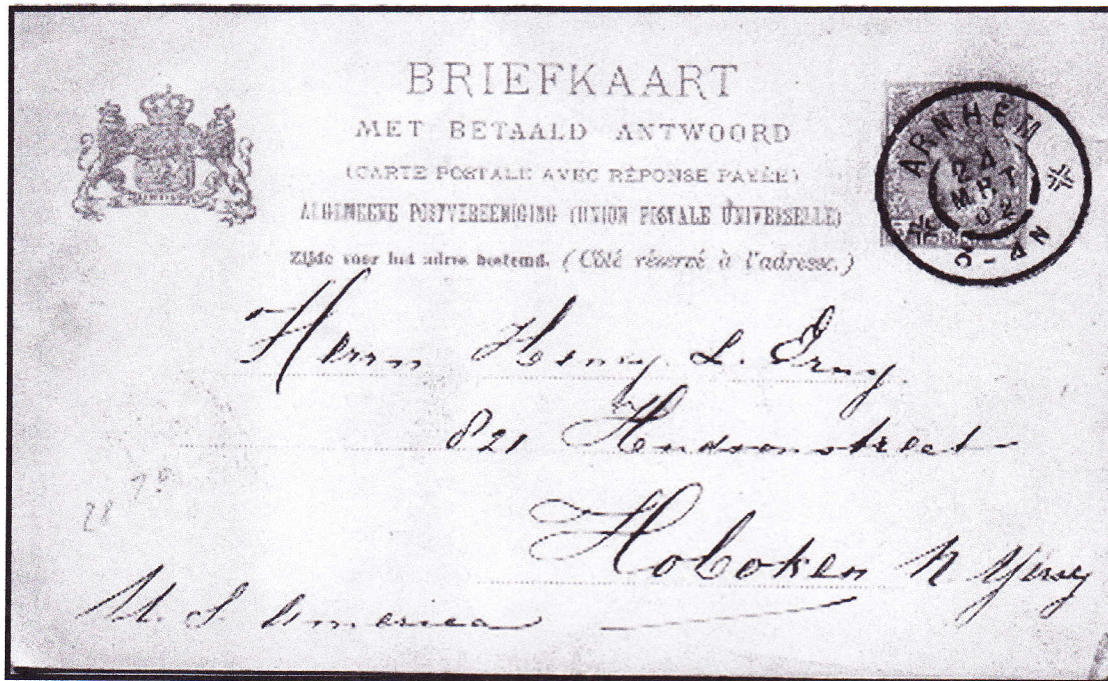 BRIEFKAART
MET BETAALD ANTWOORD
(CARTE POSTALE AVEC RÉPONSE PAYÉE)
ALGEMEENE POSTVEREENIGING (UNION POSTALE UNIVERSELLE)
Zijde voor het adres bestemd. (Côté réservé à l'adresse.)
ARNHEM
24
MRT
02
3-4N
Herrn Henry. L.
821 Hudsonstreet
Hoboken N Yersey
U. S America